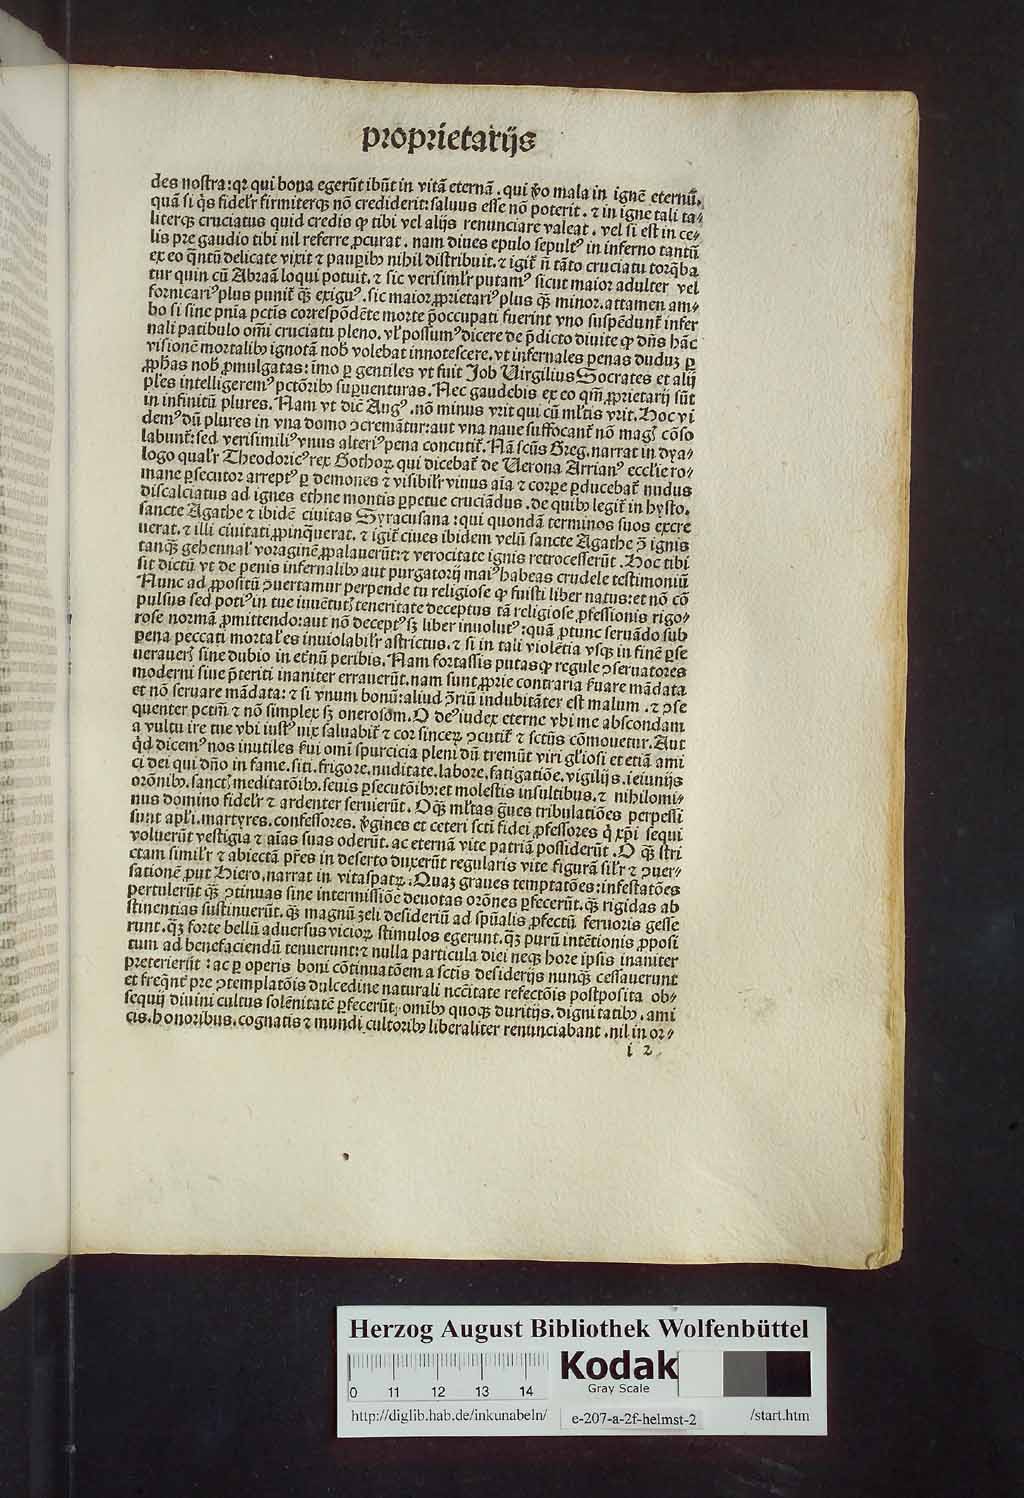 proprietarijs
des nostra: qꝛ qui bona egerūt ibūt in vitā eternā. qui ṽo mala in ignē eternū.
quā si q̄s fidelr̄ firmiterqꝫ nō crediderit: saluus esse nō poterit. ⁊ in igne tali ta⸗
literqꝫ cruciatus quid credis ꝙ tibi vel alijs renunciare valeat. vel si est in ce⸗
lis pre gaudio tibi nil referre ꝓcurat. nam diues epulo sepultꝰ in inferno tantū
ex eo q̄ntū delicate vixit ⁊ pauꝑibꝫ nihil distribuit. ⁊ igit̄ ī tāto cruciatu torq̄ba
tur quin cū Abraā loqui potuit. ⁊ sic verisimlr̄ putamꝰ sicut maior adulter vel
fornicariꝰ plus punit̄ qꝫ̄ exiguꝰ. sic maior ꝓprietariꝰ plus qꝫ̄ minor. attamen am⸗
bo si sine pnīa pctīs correspōdēte morte p̄occupati fuerint vno suspēdunt̄ infer
nali patibulo om̄i cruciatu pleno. vl̄ possumꝰ dicere de p̄dicto diuite ꝙ dn̄s hāc
visionē mortalibꝫ ignotā nob̄ volebat innotescere. vt infernales penas duduꝫ ꝑ
ꝓph̄as nob̄ ꝓmulgatas: īmo ꝑ gentiles vt fuit Job Virgilius Socrates et alij
ples intelligeremꝰ pctōribꝫ suꝑuenturas. Nec gaudebis ex eo qm̄ ꝓprietarij sūt
in infinitū plures. Nam vt dic̄ Augꝰ. nō minus vrit qui cū ml̄tis vrit. Hoc vi
demꝰ dū plures in vna domo ꝯcremātur: aut vna naue suffocant̄ nō magꝭ cōso
labunt̄: sed verisimiliꝰ vnus alteriꝰ pena concutit̄. Nā scūs Greg. narrat in dya⸗
logo qualr̄ Theodoricꝰ rex Gothoꝝ qui dicebat̄ de Verona Arrianꝰ eccl̄ie ro⸗
mane ꝑsecutor arreptꝰ ꝑ demones ⁊ visibilr̄ viuus aīa ⁊ corꝑe ꝑducebat̄ nudus
discalciatus ad ignes ethne montis ꝑpetue cruciādus. de quibꝫ legit̄ in hysto.
sancte Agathe ⁊ ibidē ciuitas Syracusana: qui quondā terminos suos excre
uerat. ⁊ illi ciuitati ꝓpinq̄uerat. ⁊ igit̄ ciues ibidem velū sancte Agathe ꝯ̄ ignis
tanqꝫ̄ gehennal̄ voraginē ꝓpalauerūt: ⁊ verocitate ignis retrocesserūt. Hoc tibi
sit dictū vt de penis infernalibꝫ aut purgatorij maiꝰ habeas crudele testimoniū
Nunc ad ꝓpositū ꝯuertamur perpende tu religiose ꝙ fuisti liber natus: et nō cō
pulsus sed potiꝰ in tue iuuētutꝭ teneritate deceptus tā religiose ꝓfessionis rigo⸗
rose normā ꝓmittendo: aut nō deceptꝰ sꝫ liber inuolutꝰ: quā ꝓtunc seruādo sub
pena peccati mortal̄es inuiolabilr̄ astrictus. ⁊ si in tali violētia vsqꝫ in finē ꝑse
uerauerꝭ sine dubio in et̄nū peribis. Nam fortassis putas ꝙ regule ꝯseruatores
moderni siue p̄teriti inaniter errauerūt. nam sunt ꝓprie contraria ẜuare mādata
et nō seruare mādata: ⁊ si vnum bonū: aliud ꝯ̄riū indubitāter est malum. ⁊ ꝯse
quenter pctm̄ ⁊ nō simplex sꝫ onerosū. O deꝰ iudex eterne vbi me abscondam
a vultu ire tue vbi iustꝰ vix saluabit̄ ⁊ cor sinceꝝ ꝯcutit̄ ⁊ sctūs cōmouetur. Aut
qͥd dicemꝰ nos inutiles ẜui om̄i spurcicia pleni dū tremūt viri gl̄iosi et etiā ami
ci dei qui dn̄o in fame. siti. frigore. nuditate. labore. fatigatiōe. vigilijs. ieiunijs
orōnibꝫ. sanctꝭ meditatōibꝫ. seuis ꝑsecutōibꝫ: et molestis insultibus. ⁊ nihilomi⸗
nus domino fidelr̄ ⁊ ardenter seruierūt. O qꝫ̄ ml̄tas gūes tribulatiōes perpessi
sunt apl̄i. martyres. confessores. ṽgines et ceteri scti fidei ꝓfessores q̇ xp̄i sequi
voluerūt vestigia ⁊ aīas suas oderūt. ac eternā vite patriā possiderūt. O qꝫ̄ stri
ctam similr̄ ⁊ abiectā pr̄es in deserto duxerūt regularis vite figurā silr̄ ⁊ ꝯuer⸗
sationē ꝓut Hiero. narrat in vitaspatꝝ. Quaꝫ graues temptatōes: infestatōes
pertulerūt qꝫ̄ ꝯtinuas sine intermissiōe deuotas orōnes ꝑfecerūt. qꝫ̄ rigidas ab
stinentias sustinuerūt. qꝫ̄ magnū zeli desideriū ad spūalis ꝓfectū feruoris gesse
runt. qꝫ̄ forte bellū aduersus vicioꝝ stimulos egerunt. qꝫ̄ purū intētionis ꝓposi
tum ad benefaciendū tenuerunt: ⁊ nulla particula diei neqꝫ hore ipsis inaniter
preterierīt: ac ꝑ operis boni cōtinuatōem a sctis desiderijs nunqꝫ̄ cessauerunt
et freq̄nt̄ pre ꝯtemplatōis dulcedine naturali nccītate refectōis postposita ob⸗
sequij diuini cultus solēnitatē ꝑfecerūt: omībꝫ quoqꝫ duritijs. dignitatibꝫ. ami
cis. honoribus. cognatis ⁊ mundi cultoribꝫ liberaliter renunciabant. nil in or⸗
i 2
Herzog August Bibliothek Wolfenbüttel
0 11 12 13 14
Kodak
Gray Scale
http://diglib.hab.de/inkunabeln/ e-207-a-2f-helmst-2 /start.htm